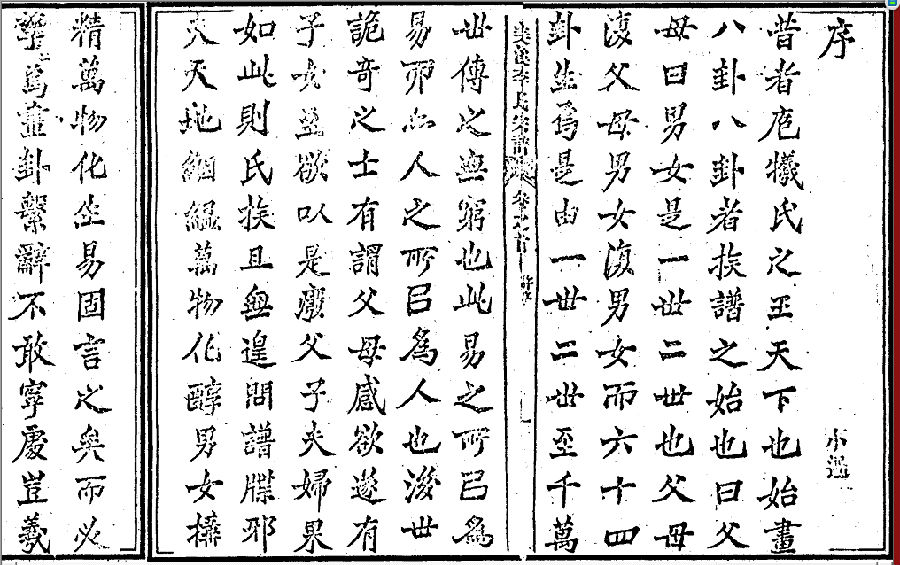 序
小過
昔者庖犧氏之王天下也始畫
八卦八卦者族譜之始也曰父
母曰男女是一世二世也父母
復父母男女復男女而六十四
卦生焉是由一世二世至千萬
李氏宗譜 卷之首
世傳之無窮也此易之所㠯為
易而亦人之所㠯為人也後世
詭奇之士有謂父母感欲遂有
子女蓋欲以是廢父子夫婦果
如此則氏族且無遑問譜牒邪
夫天地絪縕萬物化醇男女構
精萬物化生易固言之矣而必
萬彙卦繫辭不敢寧處豈羲